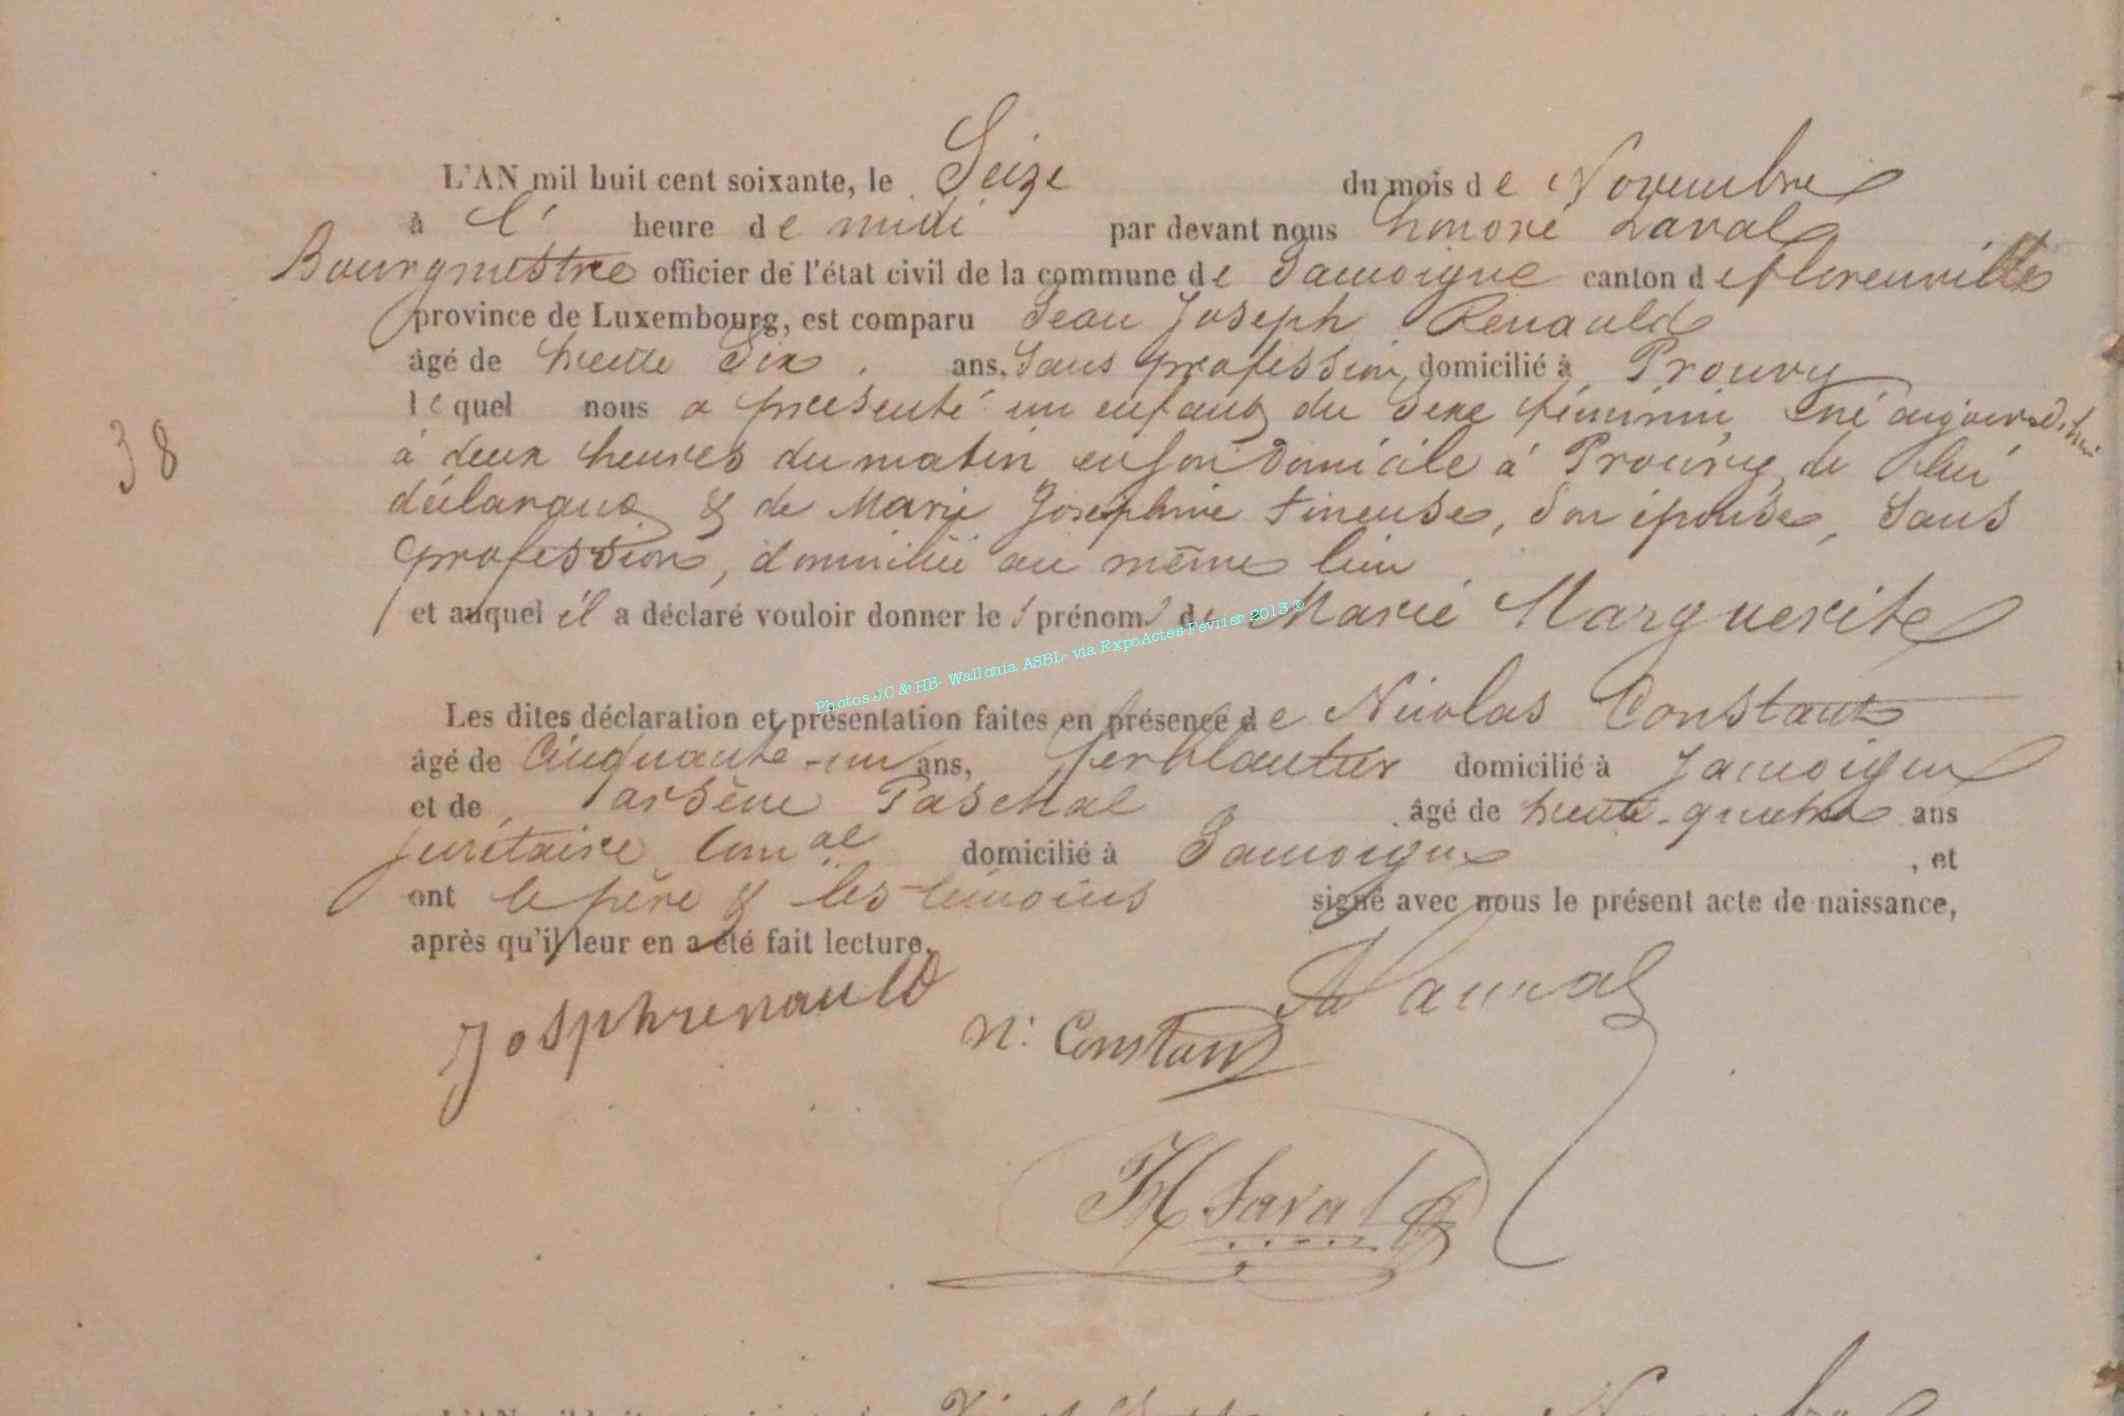 L'AN mil huit cent soixante, le Seize du mois de Novembre
à l' heure de midi par devant nous honoré Laval
Bourgmestre officier de l'état civil de la commune de Jamoigne canton de florenville
province de Luxembourg, est comparu Jean Joseph Renauld
âgé de trente Six ans, Sans profession, domicilié à Prouvy
38
lequel nous a présenté un enfant du Sexe féminin, né aujourd'hui
à deux heures du matin en son domicile à Prouvy, de lui
déclarant & de Marie Joséphine Fineuse, Son épouse, Sans
profession, domicilié au même lieu
et auquel il a déclaré vouloir donner les prénoms de Marie Marguerite
Photos JC & HB- Wallonia ASBL- via ExpoActes-Février 2013 ©
Les dites déclaration et présentation faites en présence de Nicolas Constant
âgé de Cinquante-un ans, ferblantier domicilié à Jamoigne
et de arsène Paschal âgé de trente-quatre ans
domicilié à Jamoigne, et
ont le père & les témoins signé avec nous le présent acte de naissance,
après qu'il leur en a été fait lecture.
Josphrenauld
N: Constant
H Laval
Novembre